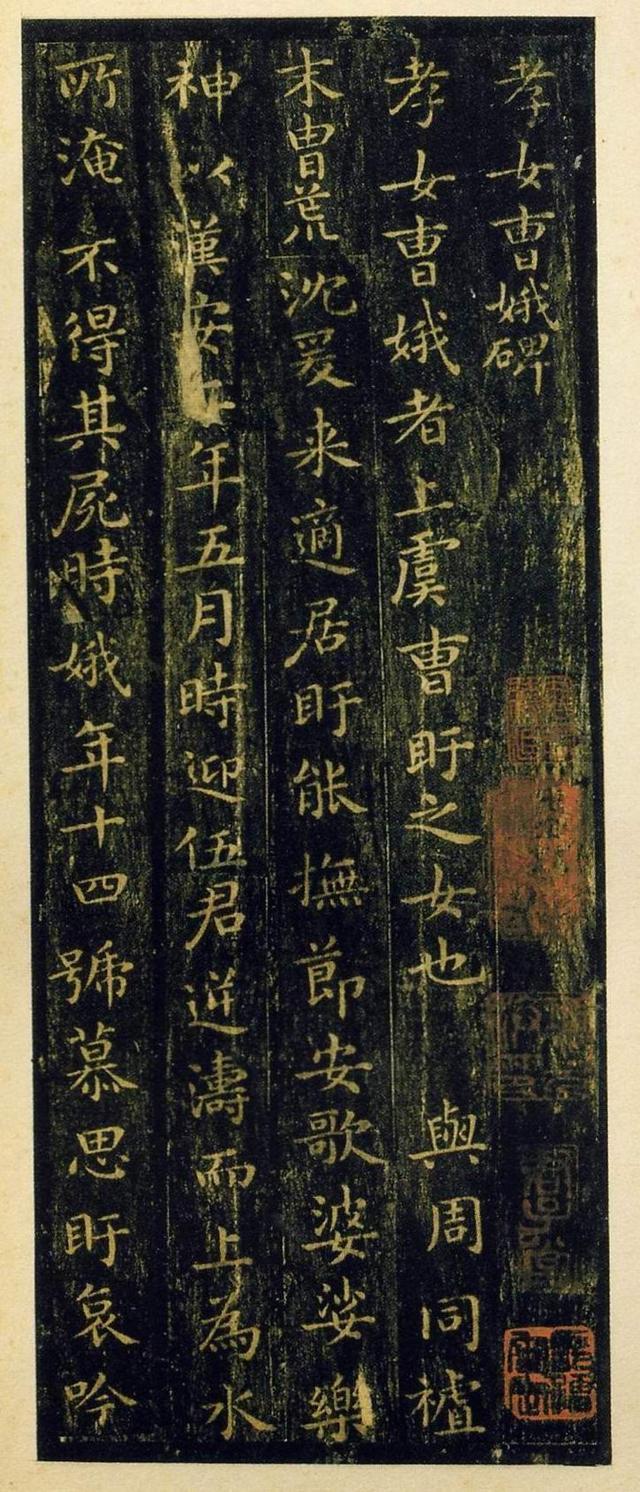 孝女曹娥碑
孝女曹娥者上虞曹盱之女也 與周同䄏
末胄荒沈爰来適居盱能撫節安歌婆娑樂
神以漢安二年五月時迎伍君逆濤而上為水
所淹不得其屍時娥年十四號慕思盱哀吟